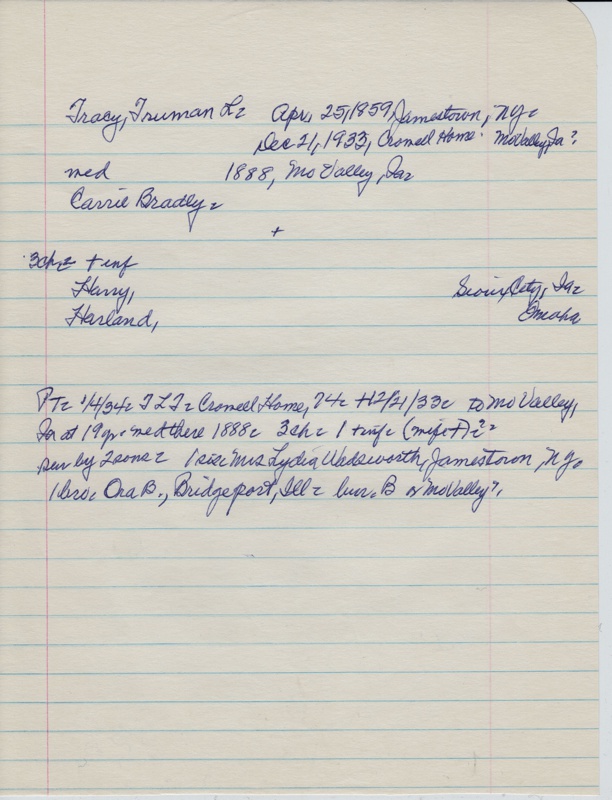 Tracy, Truman L= Apr. 25, 1859, Jamestown, N.Y.=
Dec 21, 1933, Crowell Home. Mo Valley, Ia?
med 1888, Mo Valley, Ia=
Carrie Bradly=
+
3ch.= + inf
Harry, Sioux City, Ia=
Harland, Omaha
PT= 1/4/34= T L T= Crowell Home, 74= +12/21/33= to Mo Valley,
Ia= at 19 yr= med there 1888= 3ch= 1 + inf= (wife +)=?=
sur by 2 sons= 1 sis= Mrs Lydia Wadsworth, Jamestown, N.Y.
1 bro= Ora B., Bridgeport, Ill= bur. B or Mo Valley?,